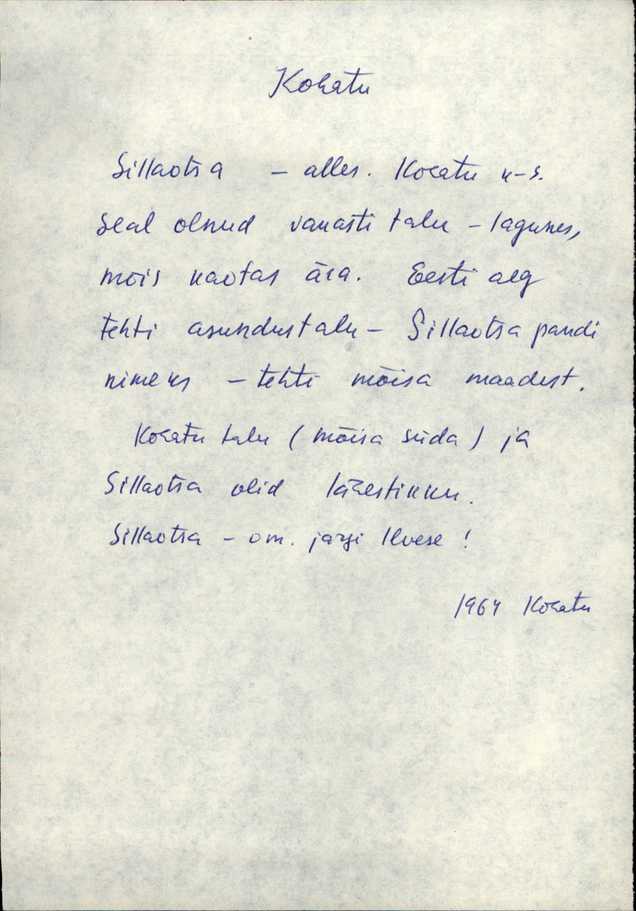 Kohatu
Sillaotsa – alles. Kohatu k-s.
Seal olnud vanasti talu – lagunes,
mõis kaotas ära. Eesti aeg
tehti asundustalu – Sillaotsa pandi
nimeks – tehti mõisa maadest.
Kohatu talu (mõisa süda) ja
Sillaotsa olid lähestikku.
Sillaotsa – om. järgi Ilvese!
1964 Kohatu